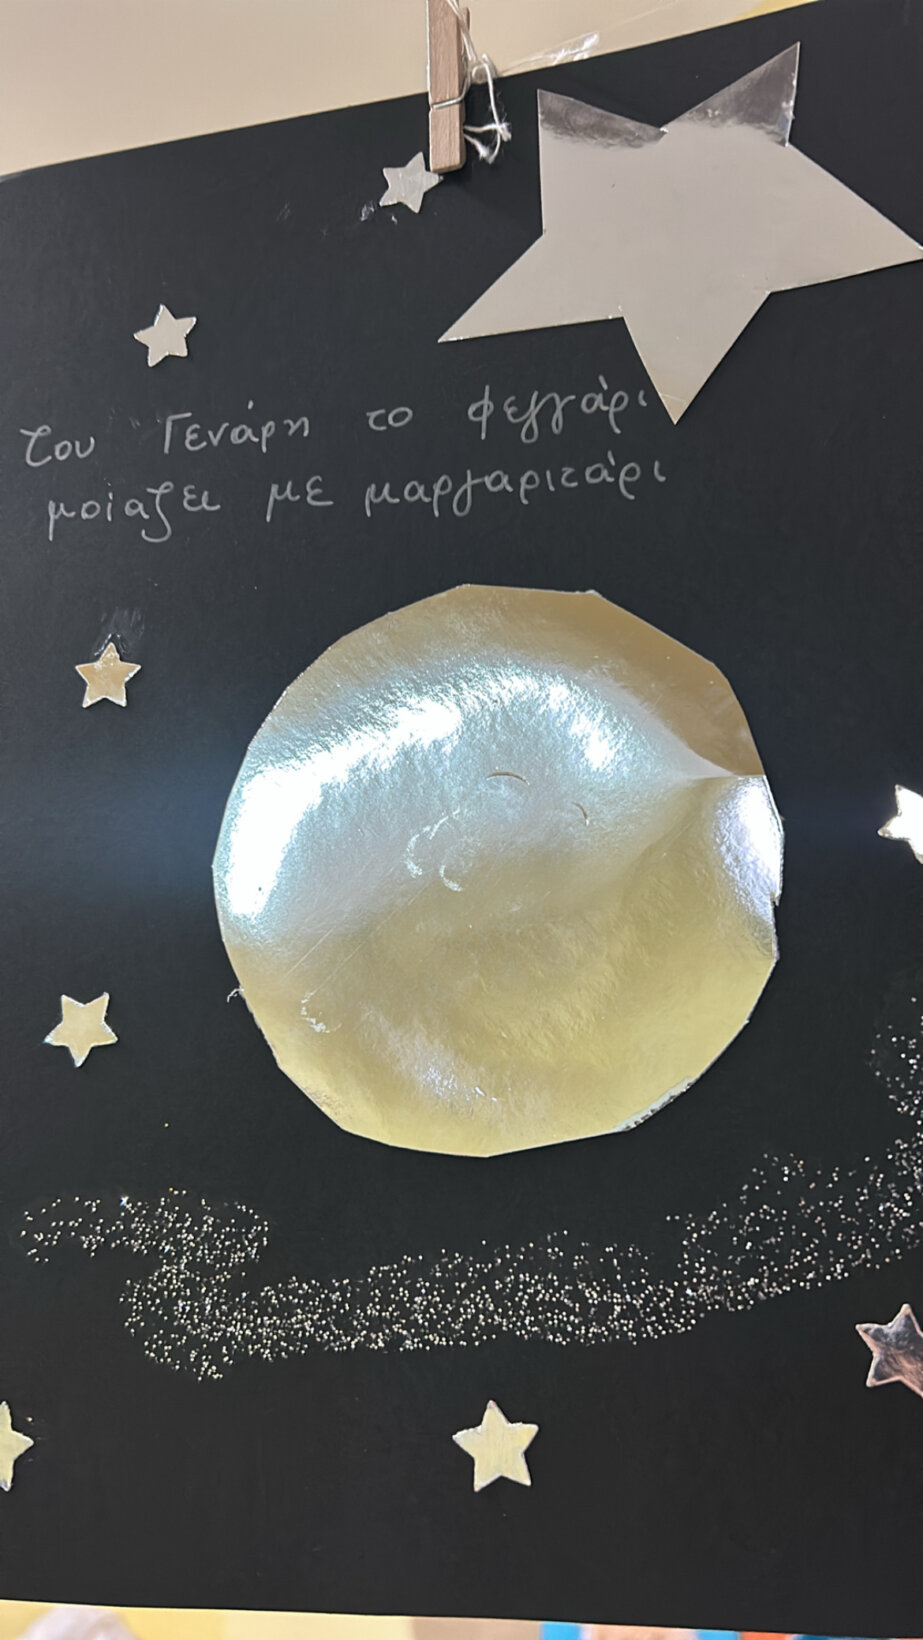 Του Γενάρη το φεγγάρι
μοιάζει με μαργαριτάρι